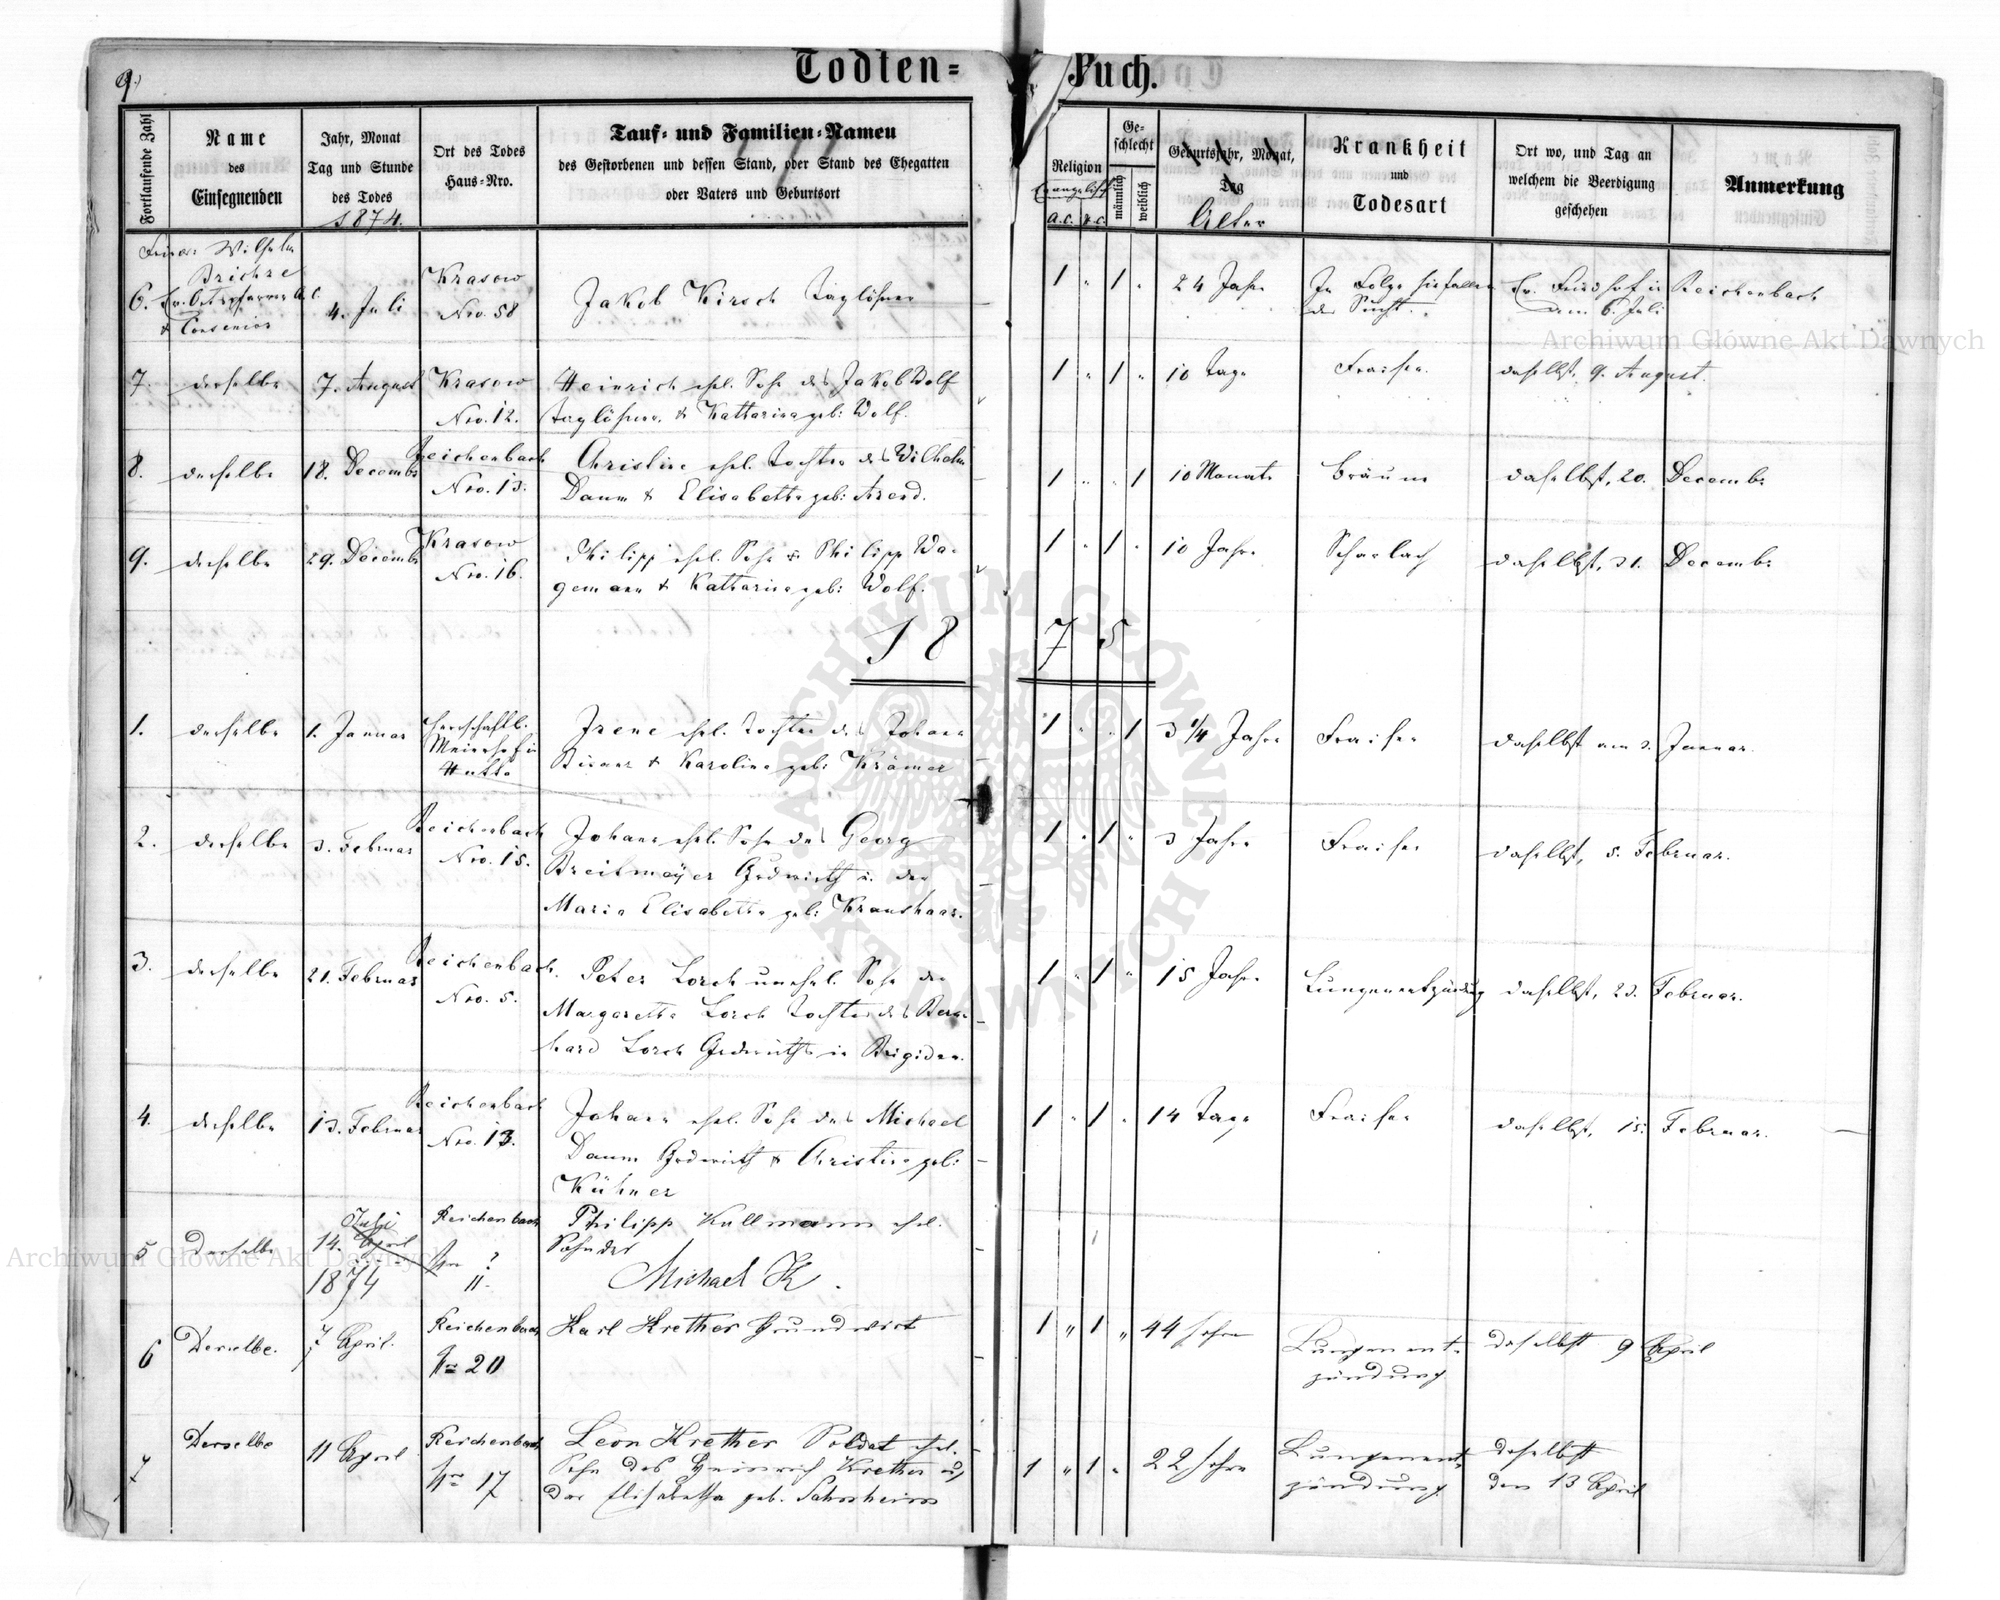 9.
Todten=
Buch.
Fortlaufende Zahl
Name
des
Einsegnenden
Jahr, Monat
Tag und Stunde
des Todes
1874.
Ort des Todes
Haus-Nro.
Tauf- und Familien-Namen
des Gestorbenen und dessen Stand, oder Stand des Ehegatten
oder Vaters und Geburtsort
Religion
Evangelisch
a.C.
Ge-
schlecht
männlich
weiblich
Geburtsjahr, Monat,
Tag
Alter
Krankheit
und
Todesart
Ort wo, und Tag an
welchem die Beerdigung
geschehen
Anmerkung
6. Wilhelm
Ev. Ortspfarrer A. C.
& Consenior
4. Juli
Krasow
Nro. 58
Jakob Kirsch Taglöhner
1 " 1 "
24 Jahre
In Folge hinfallen
der Sucht.
Ev. Friedhof in Reichenbach
am 6. Juli
7. derselbe
7. August
Krasow
Nro. 12.
Heinrich ehel. Sohn des Jakob Wolf
Taglöhner. & Katharina geb: Wolf.
1 " 1 "
10 Tage
Fraisen
daselbst, 9. August.
8. derselbe
18. Decemb:
Reichenbach
Nro. 13.
Christine ehel. Tochter des Wilhelm
Daum & Elisabetha geb: Arend.
1 " " 1
10 Monate
Bräune
daselbst, 20. Decemb:
9. derselbe
29. Decemb:
Krasow
Nro. 16.
Philipp ehel. Sohn des Philipp Wa-
gemann & Katharina geb: Wolf.
1 " 1 "
10 Jahre
Scharlach
daselbst, 31. Decemb:
1875
1. derselbe
1. Januar
herrschaftl.
Meierhof in
Irene ehel. Tochter des Johann
& Karolina geb: Krämer
1 " " 1
3 1/4 Jahre
Fraisen
daselbst am 3. Januar.
2. derselbe
3. Februar
Reichenbach
Nro. 15.
Johann ehel. Sohn des Georg
Breitmayer Grdwirth u. der
Maria Elisabetha geb: Kraushaar.
1 " 1 "
3 Jahre
Fraisen
daselbst, 5. Februar.
3. derselbe
21. Februar
Reichenbach.
Nro. 5.
Peter Lorch unehel. Sohn der
Margaretha Lorch Tochter des Bern-
hard Lorch Grdwirths in Brigidau.
1 " 1 "
15 Jahre
Lungenentzündung
daselbst, 23. Februar.
4. derselbe
13. Februar
Reichenbach
Nro. 13.
Johann ehel. Sohn des Michael
Daum Grdwirth & Christina geb:
Kühner
1 " 1 "
14 Tage
Fraisen
daselbst, 15. Februar.
5 Derselbe
Juli
14. April
1874
Reichenbach
Nro ?
11.
Philipp Kullmann ehel.
Sohn des
Michael K.
6 Derselbe.
7 April.
Reichenbach
Nro 20
Karl Krether Grundwirt
1 " 1 "
44 Jahre
Lungenent-
zündung
daselbst 9 April
7 Derselbe
11 April
Reichenbach
Nro 17
Leon Krether Soldat ehel.
Sohn des Heinrich Krether u,
der Elisabetha geb.
1 " 1 "
22 Jahre
Lungenent-
zündung
daselbst
den 13 April
Archiwum Główne Akt Dawnych
Archiwum Główne Akt Dawnych
ARCHIWUM GŁÓWNE AKT DAWNYCH